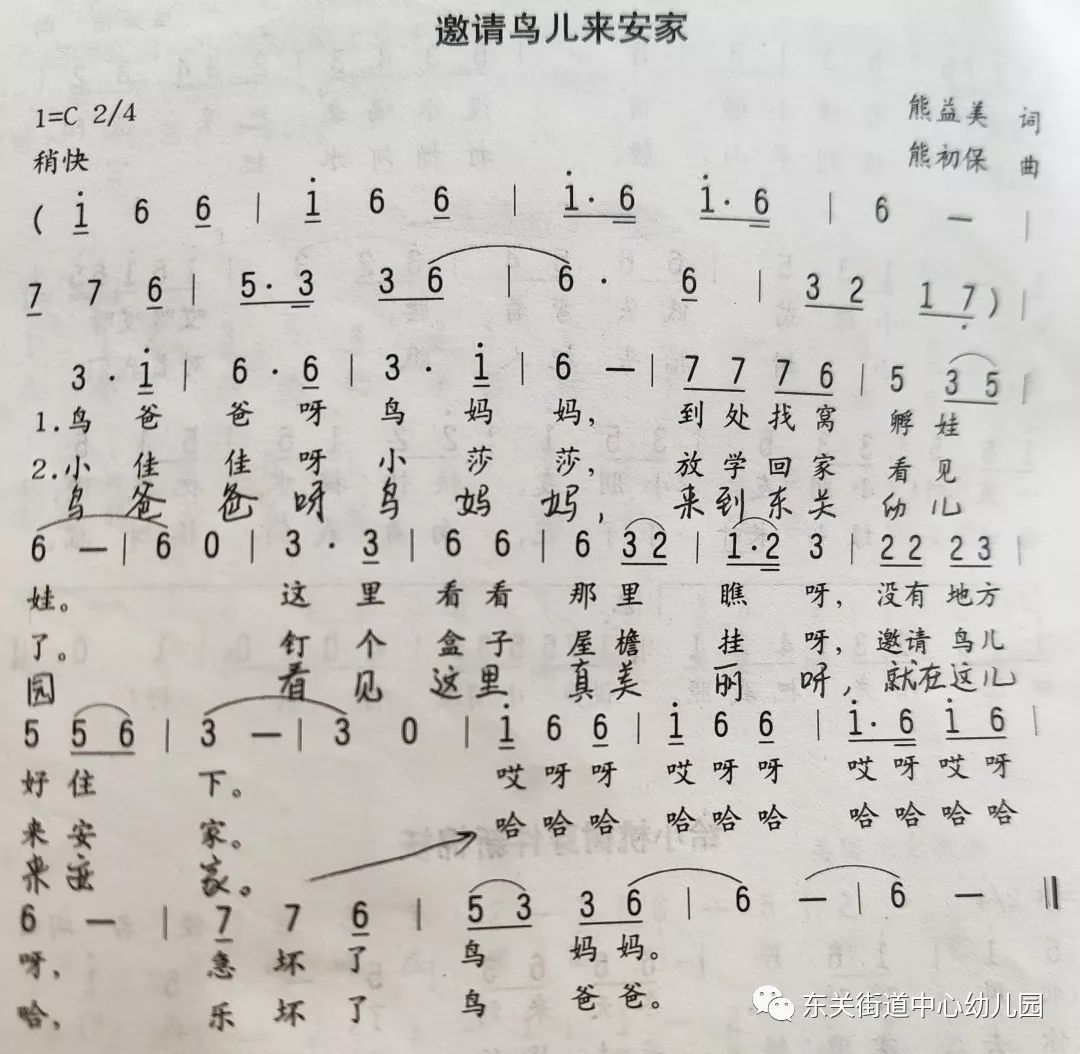 邀请鸟儿来安家
1=C 2/4
熊益美 词
稍快
熊初保 曲
( i 6 6 | i 6 6 | i· 6 i· 6 | 6 — |
7 7 6 | 5· 3 3 6 | 6 · 6 | 3 2 1 7 ) |
3 · i | 6 · 6 | 3 · i | 6 — | 7 7 7 6 | 5 3 5 |
1.鸟 爸 爸 呀 鸟 妈 妈, 到 处 找 窝 孵 娃
2.小 佳 佳 呀 小 莎 莎, 放 学 回 家 看 见
鸟 爸 爸 呀 鸟 妈 妈, 来 到 东 关 幼 儿
6 — | 6 0 | 3 · 3 | 6 6 | 6 3 2 | 1·2 3 | 2 2 2 3 |
娃。 这 里 看 看 那 里 瞧 呀, 没有 地方
了。 钉 个 盒 子 屋 檐 挂 呀, 邀请 鸟儿
园 看 见 这 里 真 美 丽 呀, 就在这儿
5 5 6 | 3 — | 3 0 | i 6 6 | i 6 6 | i· 6 i 6 |
好 住 下。 哎 呀 呀 哎 呀 呀 哎 呀 哎 呀
来 安 家。 哈 哈 哈 哈 哈 哈 哈 哈 哈 哈
来 家。
6 — | 7 7 6 | 5 3 3 6 | 6 — | 6 — ‖
呀, 急 坏 了 鸟 妈 妈。
哈, 乐 坏 了 鸟 爸 爸。
东关街道中心幼儿园